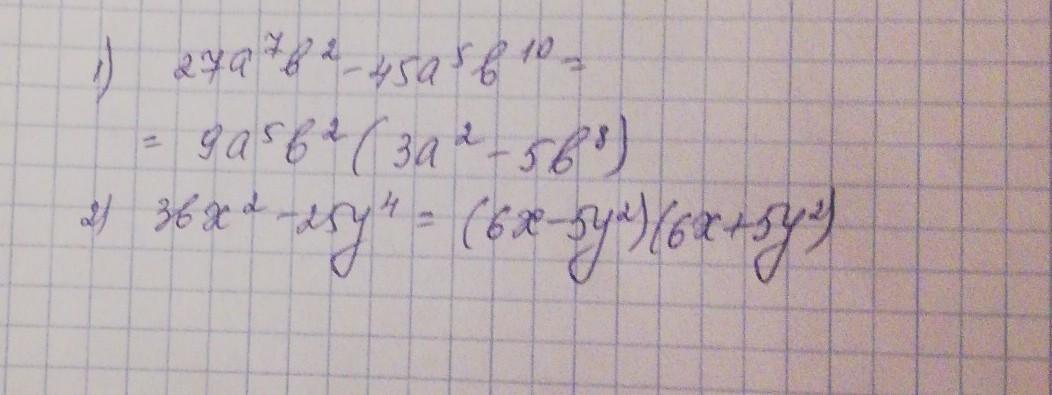 1) 27a⁷b² - 45a⁵b¹⁰ =
= 9a⁵b² (3a² - 5b⁸)
2) 36x² - 25y⁴ = (6x - 5y²)(6x + 5y²)